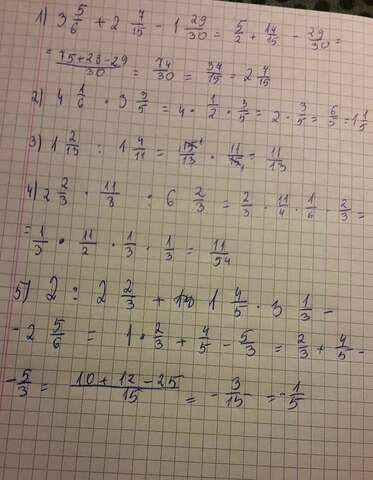 1) 3 5/6 + 2 7/15 - 1 29/30 = 5/2 + 14/15 - 29/30 =
= 75+28-29/30 = 74/30 = 34/15 = 2 4/15
2) 4 1/6 · 3 3/5 = 4 · 1/2 · 3/5 = 2 · 3/5 = 6/5 = 1 1/5
3) 1 2/13 : 1 4/11 = 15/13 · 11/15 = 11/13
4) 2 2/3 · 11/8 : 6 2/3 = 2/3 · 11/4 · 1/6 · 2/3 =
= 1/3 · 11/2 · 1/3 · 1/3 = 11/54
5) 2 : 2 2/3 + 1 4/5 · 3 1/3 -
- 2 5/6 = 1 · 2/3 + 4/5 - 5/3 = 2/3 + 4/5 -
- 5/3 = 10+12-25/15 = - 3/15 = - 1/5